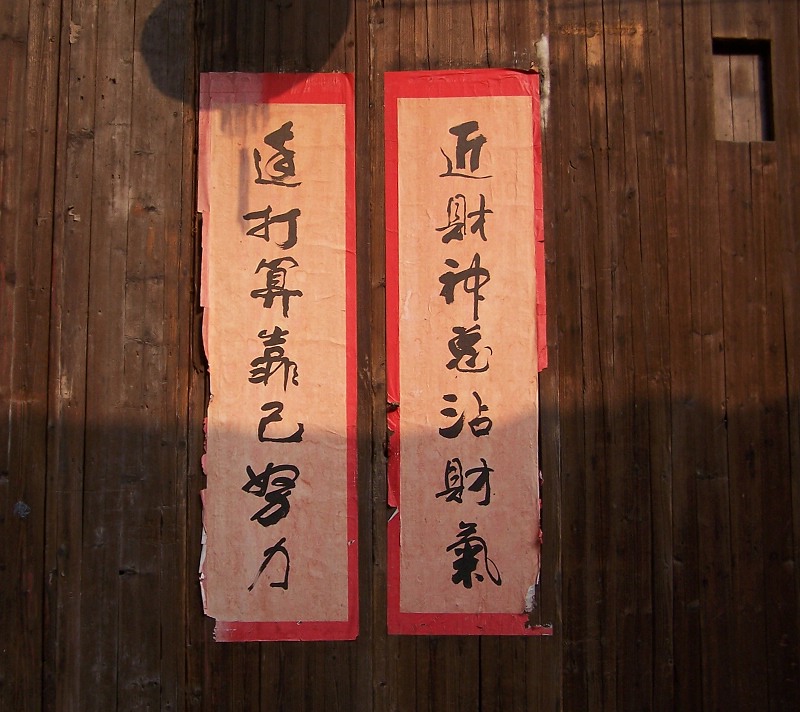 近財神沾財氣
遠打算靠己努力